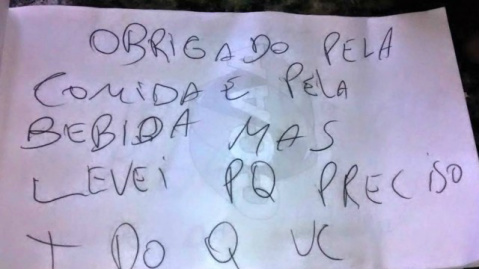 OBRIGADO PELA
COMIDA E PELA
BEBIDA MAS
LEVEI PQ PRECISO
+ DO Q VC